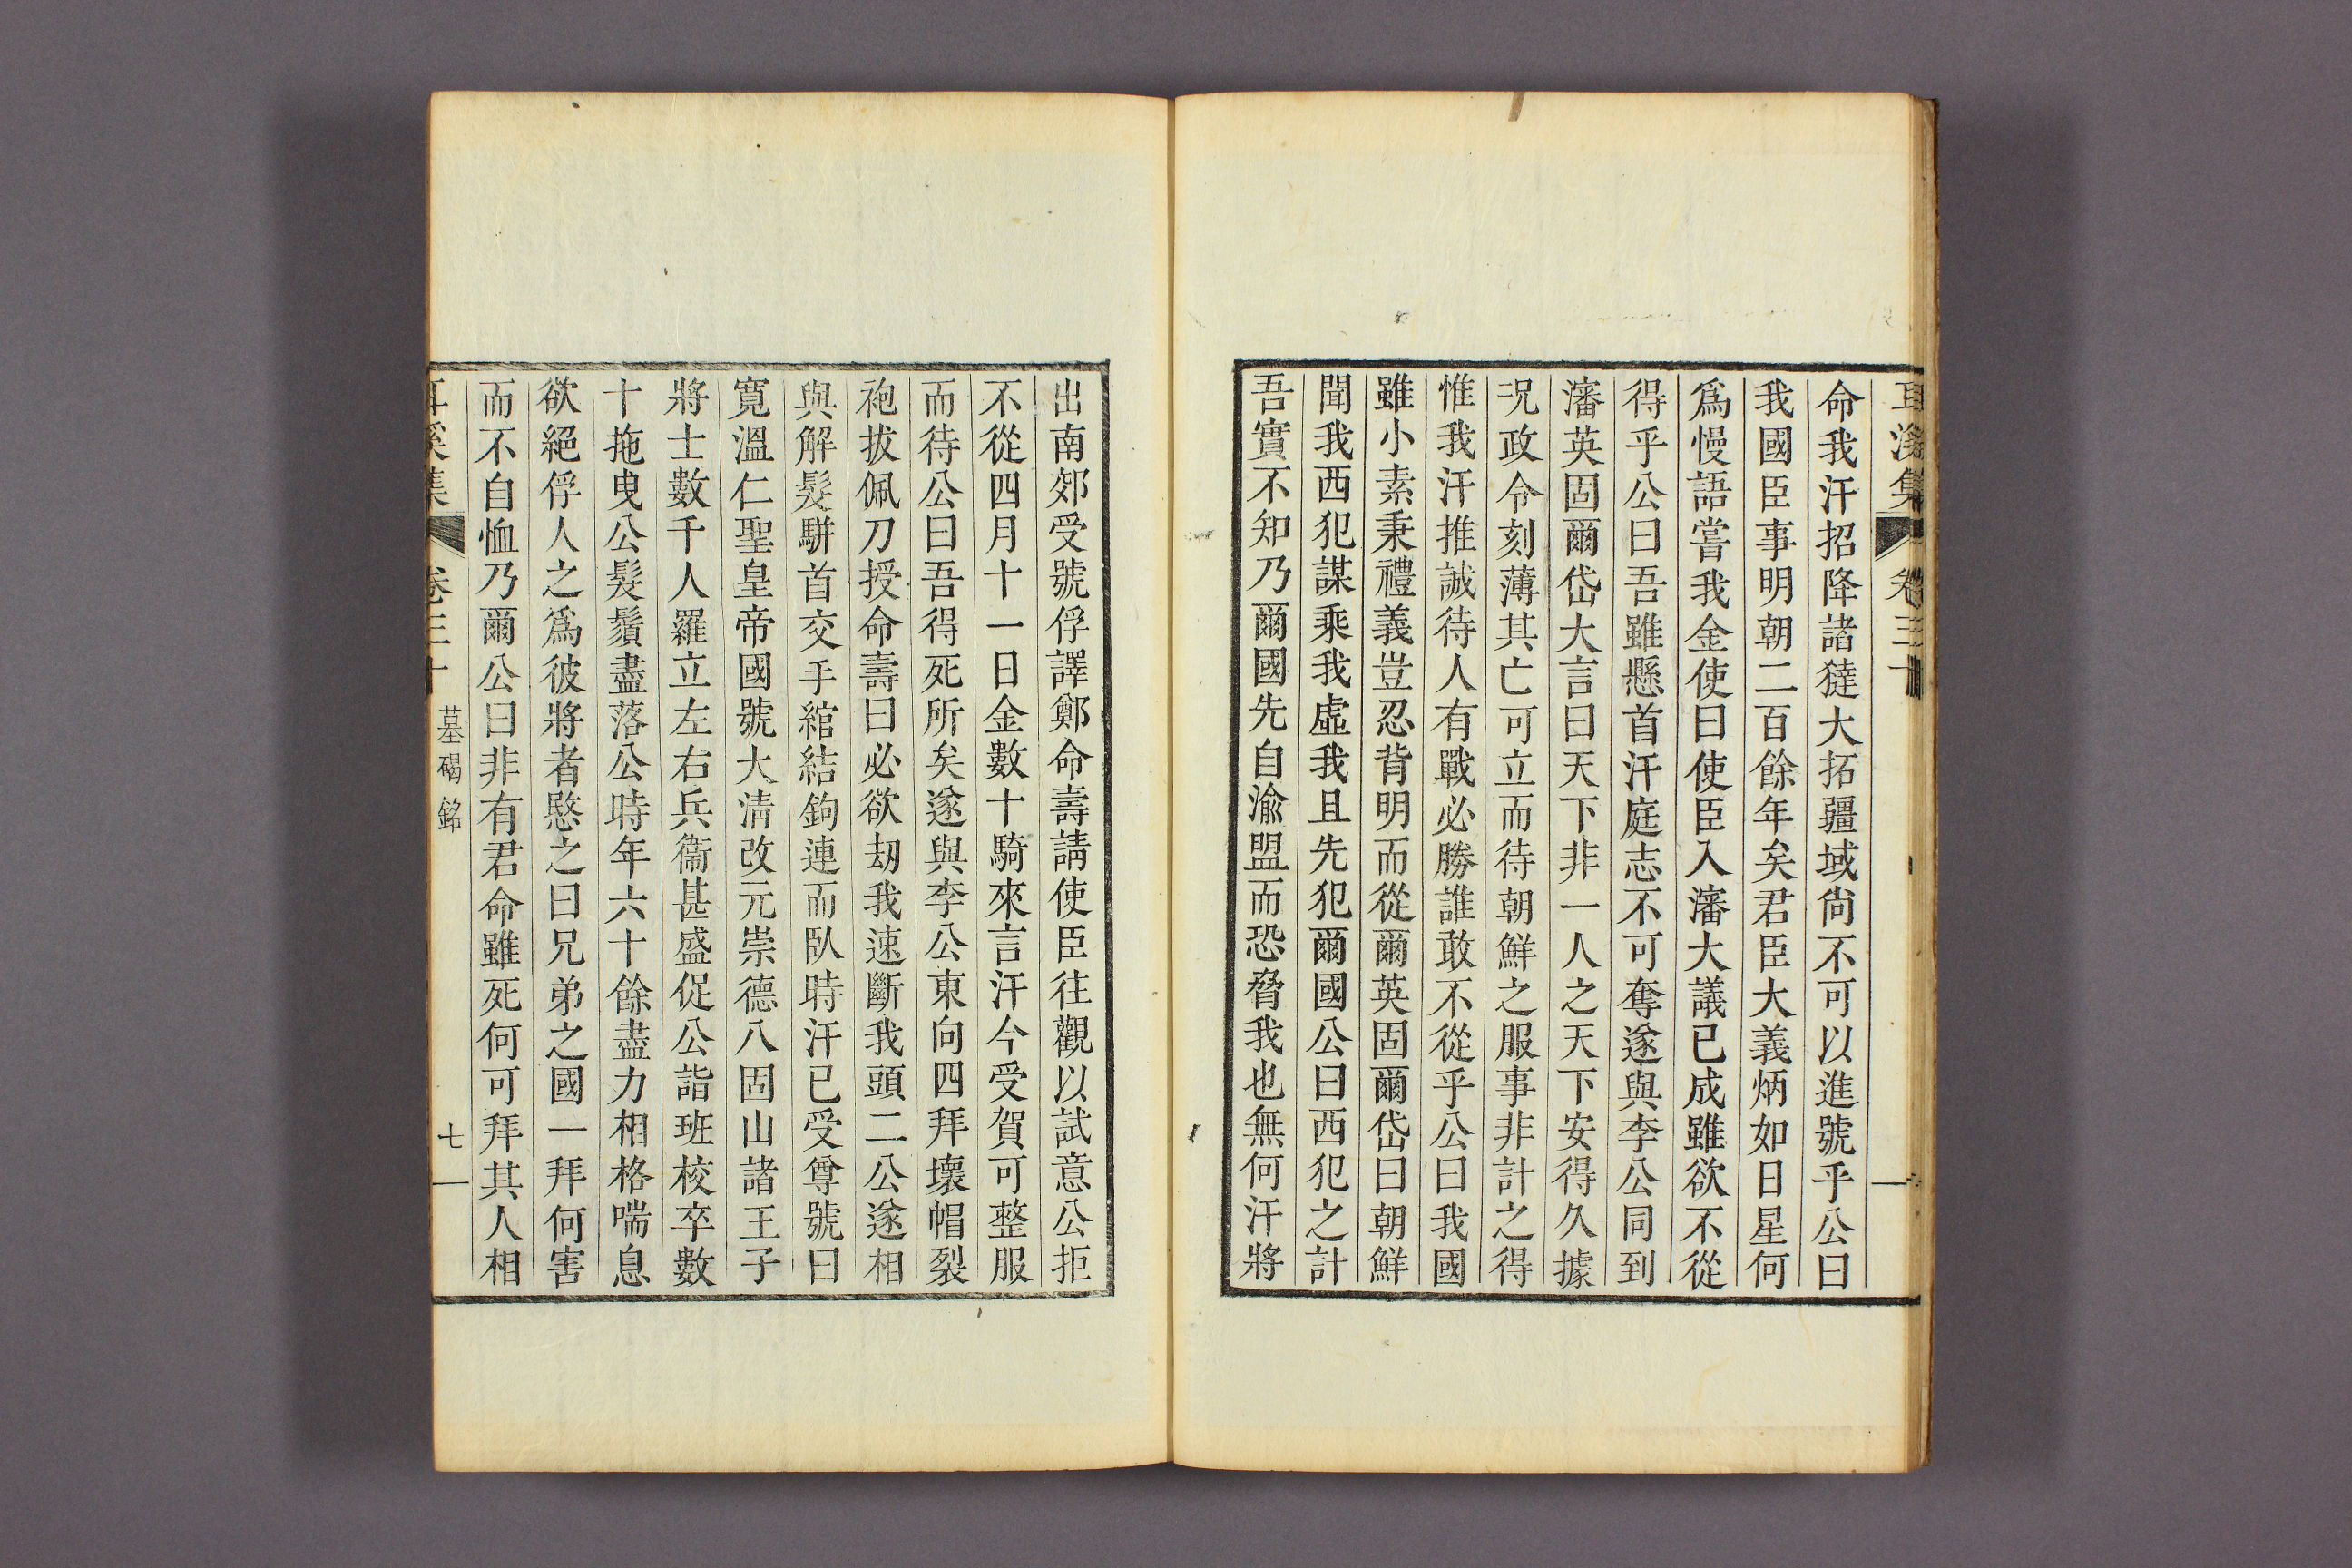 耳溪集 卷三十
命我汗招降諸㺚大拓疆域尙不可以進號乎公曰
我國臣事明朝二百餘年矣君臣大義炳如日星何
爲慢語嘗我金使曰使臣入瀋大議已成雖欲不從
得乎公曰吾雖懸首汗庭志不可奪遂與李公同到
瀋英固爾岱大言曰天下非一人之天下安得久據
况政令刻薄其亡可立而待朝鮮之服事非計之得
惟我汗推誠待人有戰必勝誰敢不從乎公曰我國
雖小素秉禮義豈忍背明而從爾英固爾岱曰朝鮮
聞我西犯謀乘我虛我且先犯爾國公曰西犯之計
吾實不知乃爾國先自渝盟而恐脅我也無何汗將
出南郊受號俘譯鄭命壽請使臣往觀以試意公拒
不從四月十一日金數十騎來言汗今受賀可整服
而待公曰吾得死所矣遂與李公東向四拜壞帽裂
袍拔佩刀授命壽曰必欲刼我速斷我頭二公遂相
與解髮騈首交手綰結鉤連而臥時汗已受尊號曰
寬溫仁聖皇帝國號大淸改元崇德八固山諸王子
將士數千人羅立左右兵衞甚盛促公詣班校卒數
十拖曳公髮鬚盡落公時年六十餘盡力相格喘息
欲絕俘人之爲彼將者愍之曰兄弟之國一拜何害
而不自恤乃爾公曰非有君命雖死何可拜其人相
耳溪集 卷三十 墓碣銘 七